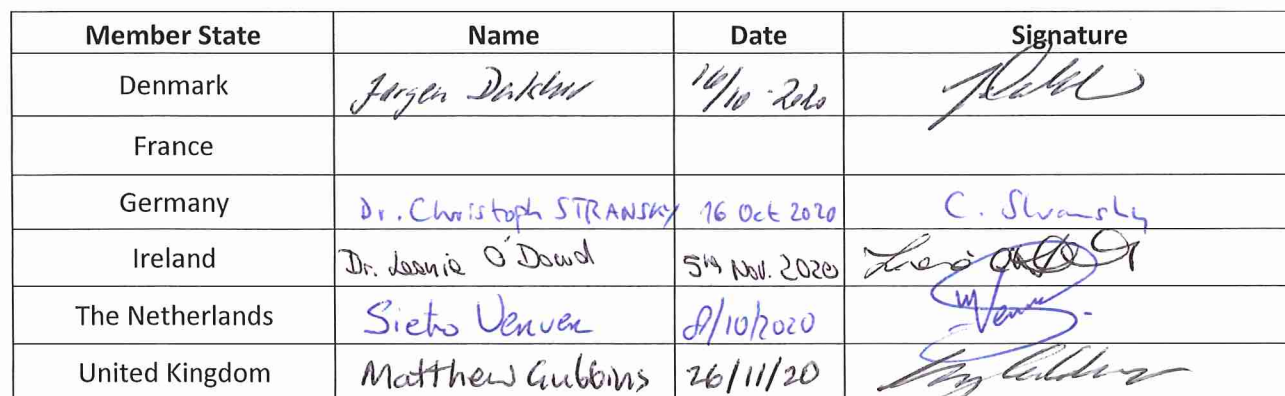 Member State Name Date Signature
Denmark Jørgen Dalskov 16/10-2020
France
Germany Dr. Christoph STRANSKY 16 Oct 2020 C. Stransky
Ireland Dr. Leonie O'Dowd 5th Nov. 2020
The Netherlands Sieto Verver 8/10/2020
United Kingdom Matthew Gubbins 26/11/20